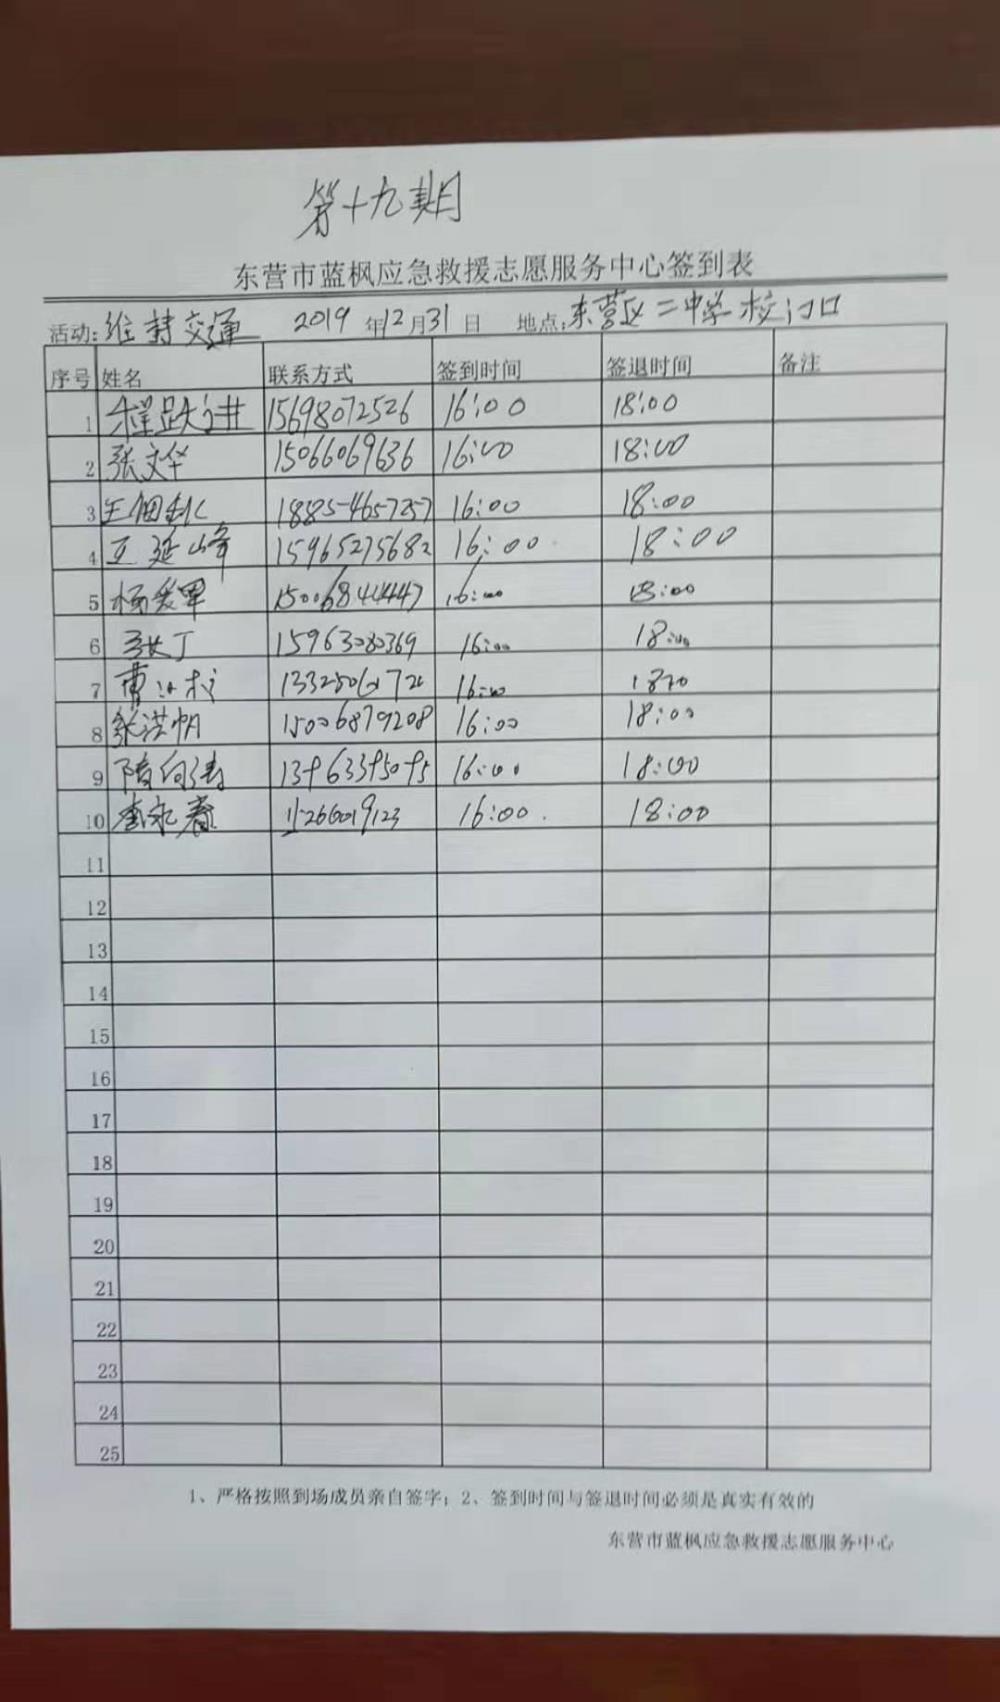 第十九期
东营市蓝枫应急救援志愿服务中心签到表
活动:维持交通 2019年12月31日 地点:东营区二中学校门口
序号 姓名 联系方式 签到时间 签退时间 备注
1 程跃进 15698072526 16:00 18:00
2 张文华 15066069636 16:00 18:00
3 18854657257 16:00 18:00
4 王延峰 15965275682 16:00 18:00
5 杨爱军 15006844447 16:00 18:00
6 张丁 15963080369 16:00 18:00
7 曹 16:00 1800
8 张洪帆 15006879208 16:00 18:00
9 隋向涛 13963395095 16:00 18:00
10 李永春 16:00 18:00
11
12
13
14
15
16
17
18
19
20
21
22
23
24
25
1、严格按照到场成员亲自签字;2、签到时间与签退时间必须是真实有效的
东营市蓝枫应急救援志愿服务中心